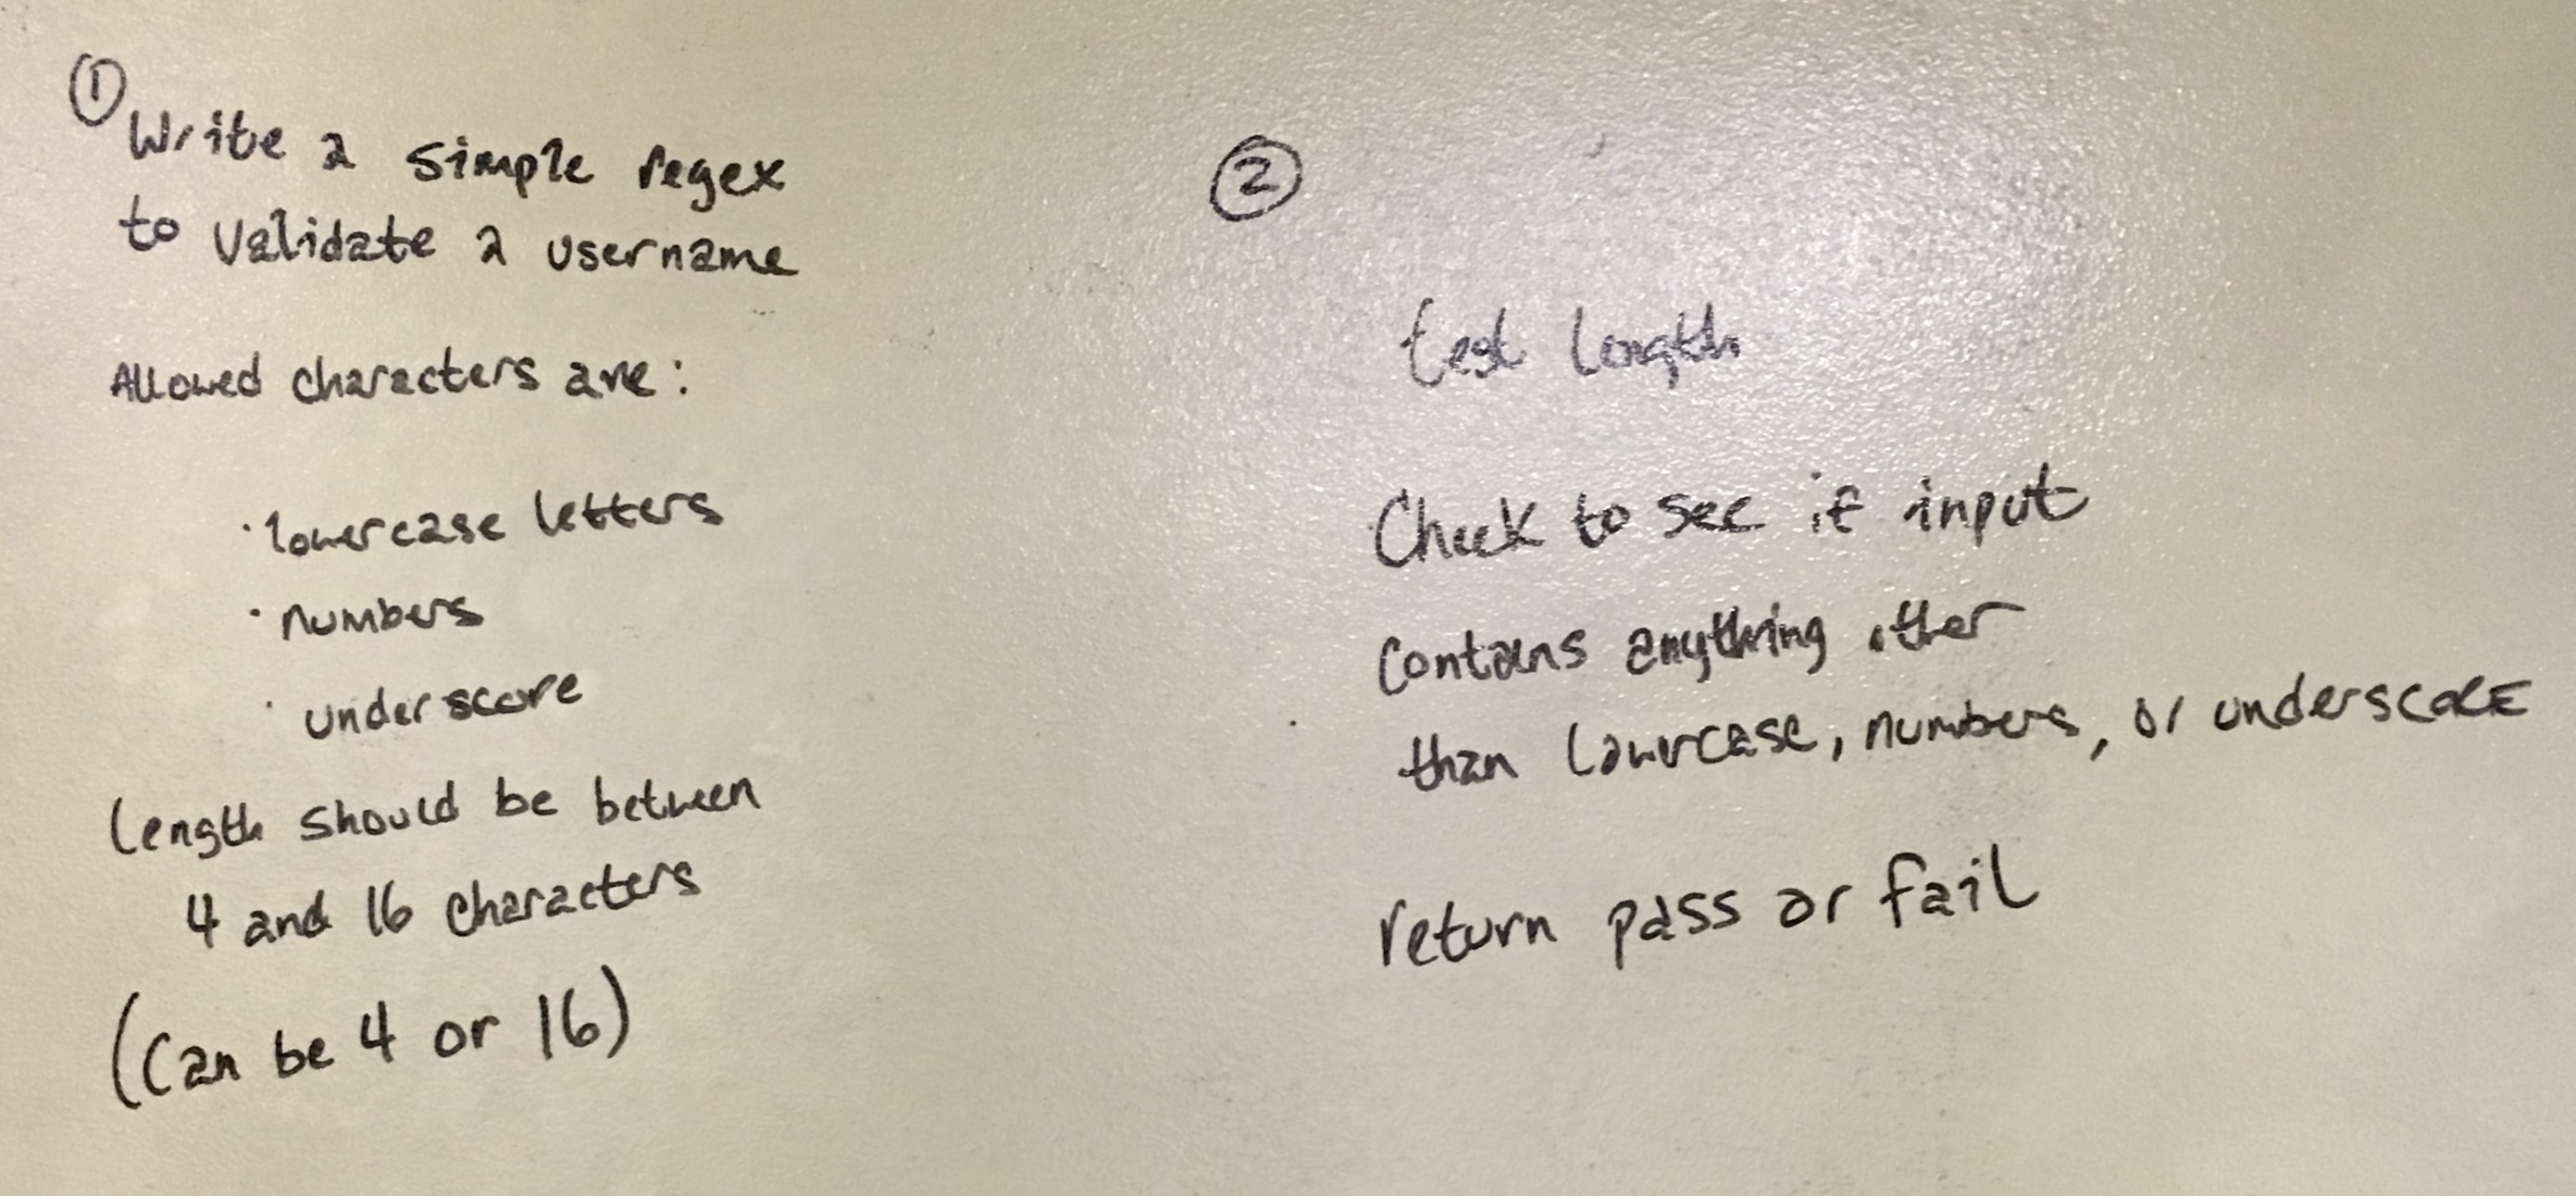 ①
Write a simple regex
to validate a username
Allowed characters are:
· lowercase letters
· numbers
· underscore
length should be between
4 and 16 characters
(can be 4 or 16)
②
test length
Check to see if input
contains anything other
than lowercase, numbers, or underscore
return pass or fail